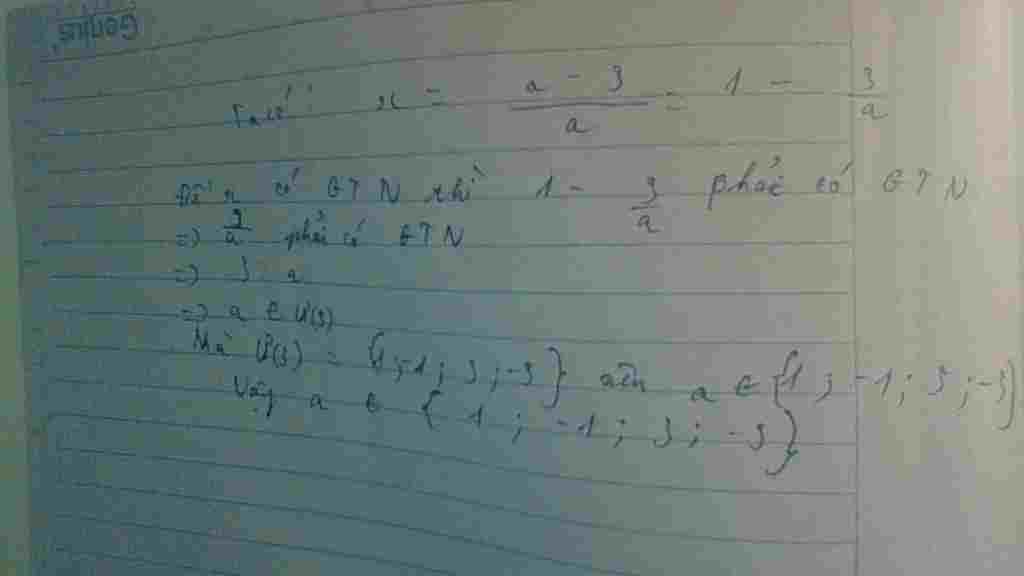 Genius
Ta có : x = a - 3 / a = 1 - 3 / a
Để x có GTN thì 1 - 3 / a phải có GTN
=> 3 / a phải có GTN
=> 3 ⋮ a
=> a ∈ Ư(3)
Mà Ư(3) = {1 ; -1 ; 3 ; -3} nên a ∈ {1 ; -1 ; 3 ; -3}
Vậy a ∈ {1 ; -1 ; 3 ; -3}